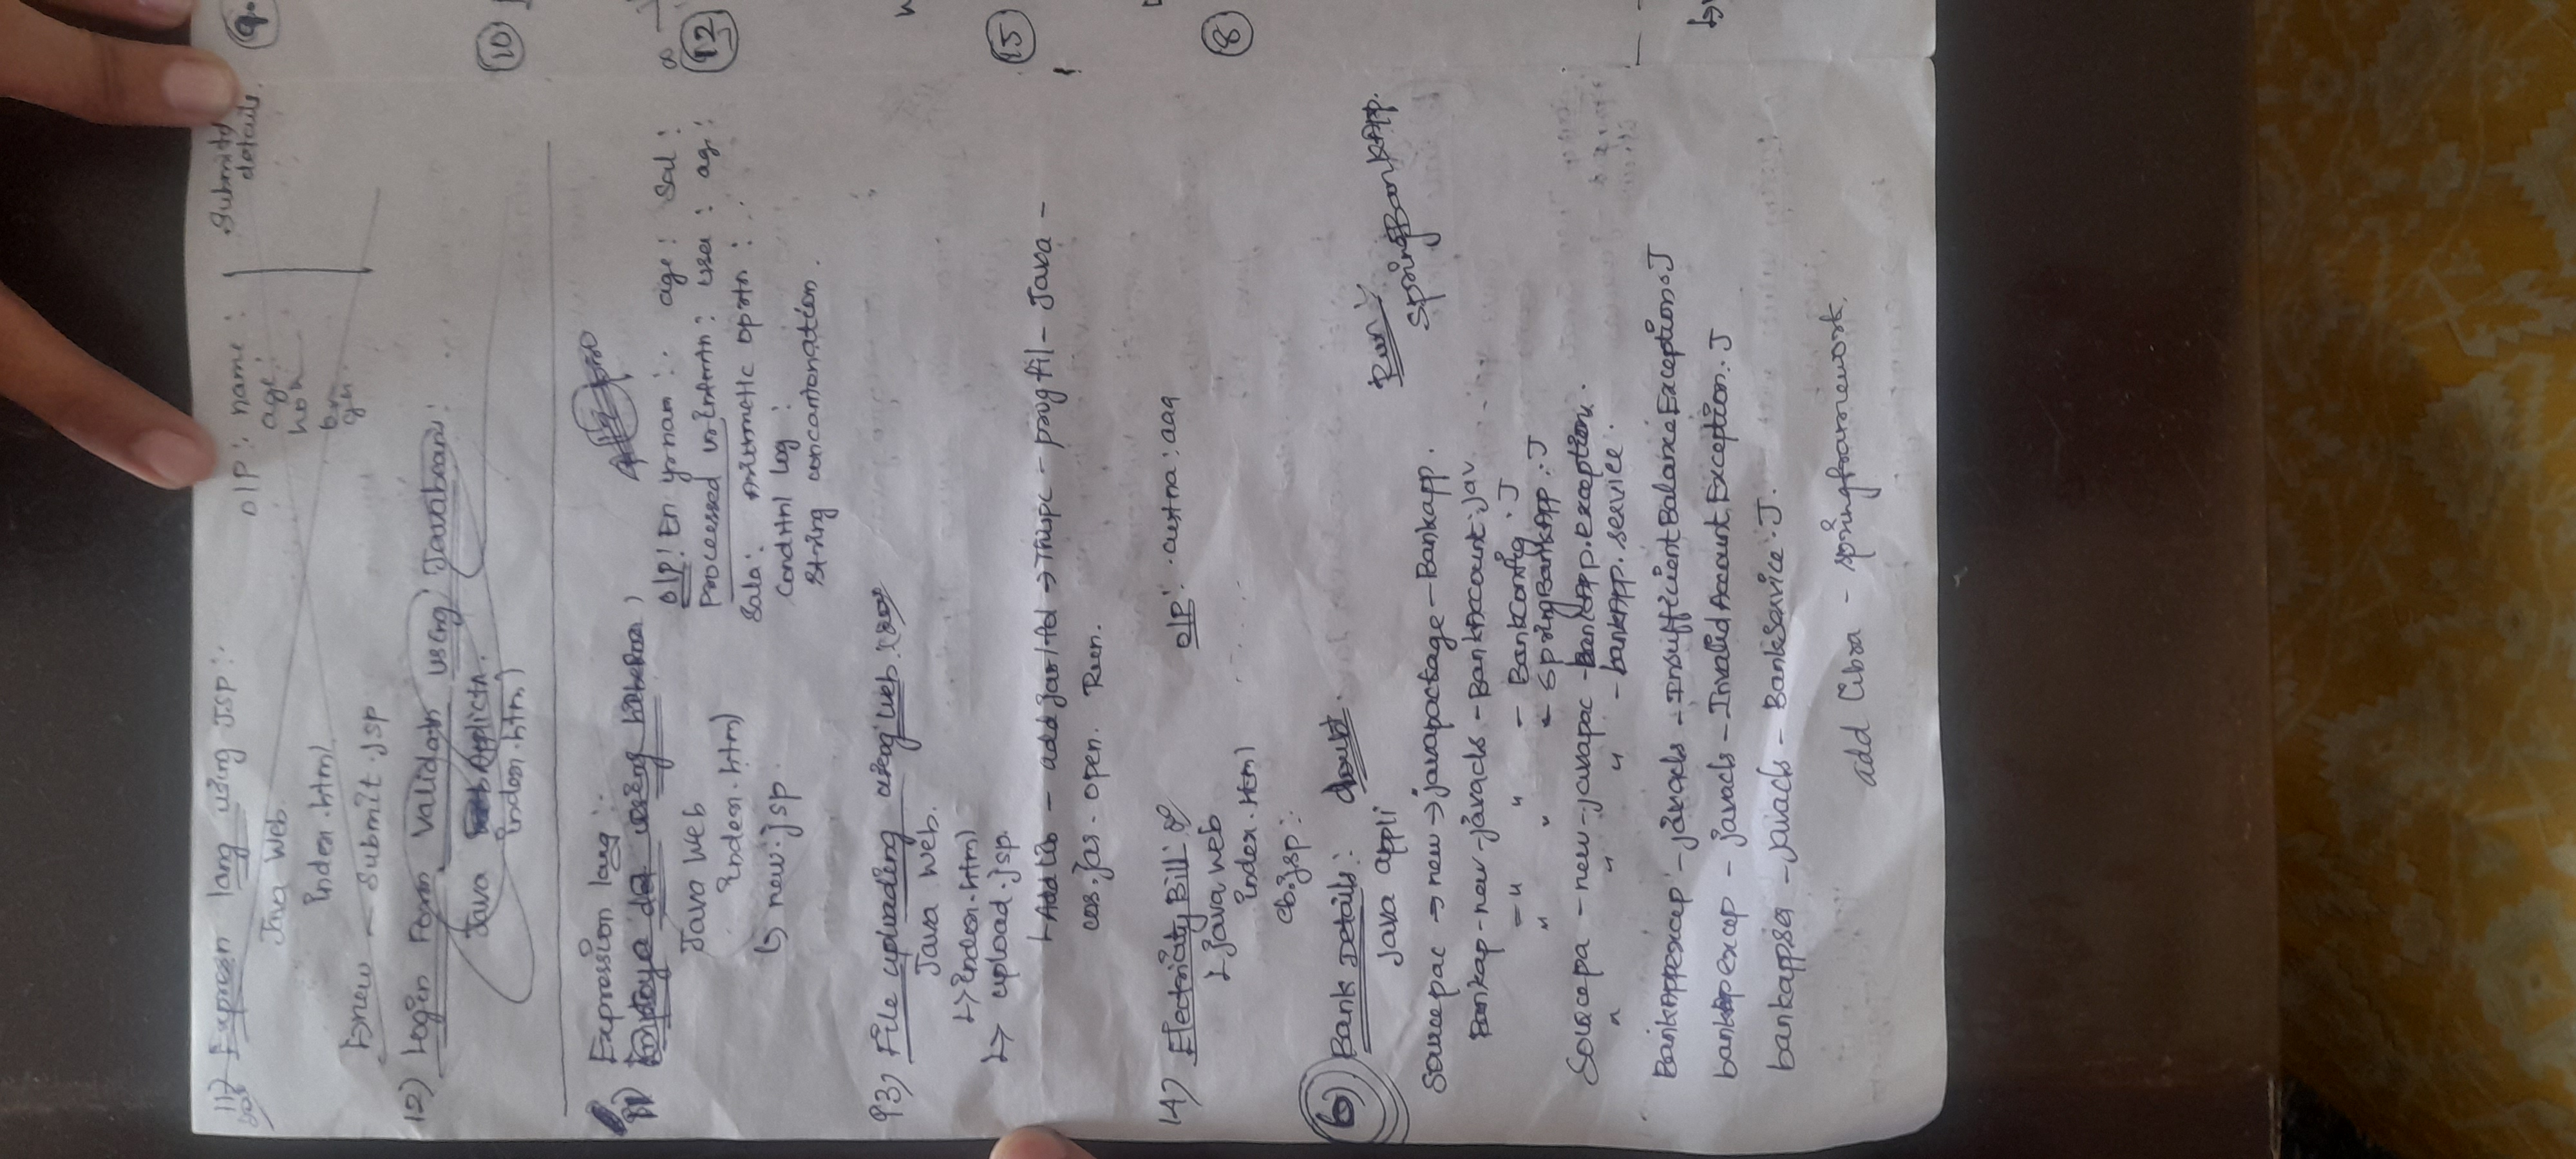 11) Expresn lang using JSP:
Java Web
index.html
↳new - Submit.jsp
O/P: name :
age :
Submitd
details.
9.
12) Login Form Validatn using Javabeans:
Java Applictn.
index.html
10
Expression lang :
11)
Java Web
index.html
↳ new.jsp
O/P! En yrnam : age : Sal :
Processed : user : ag :
Sala : Arithmetic oprtn :
Condtnl log :
String concantonation .
12
13) File uploading using web :
Java Web.
↳ index.html
↳ upload.jsp
↳ Add Lib - add jar/fol → Thispc - prog fil - Java -
cos.jar - open. Run.
15
14) Electricity Bill :
↳ java web
index.html
eb.jsp :
O/P : custna : aaa
8
6) Bank Details : doubt.
Java appli
Run :
SpringBankApp.
Sourcepac → new → javapackage - Bankapp.
Bankap - new - javacls - BankAccount.jav
- " " - BankConfig . J
" " - SpringBankApp . J
Sourcepa - new - javapac - bankApp.exception.
" " " - bankApp.service.
BankAppexcep - javacls - InsufficientBalanceException.J
bankAp excep - javacls - InvalidAccountException. J
bankappser - javacls - BankService . J.
add Libra - springframework.